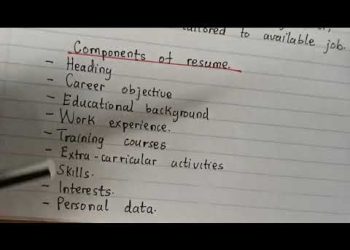 tailored to available job.
Components of resume.
- Heading
- Career objective
- Educational background
- Work experience.
- Training courses
- Extra-carricular activities
- Skills.
- Interests.
- Personal data.